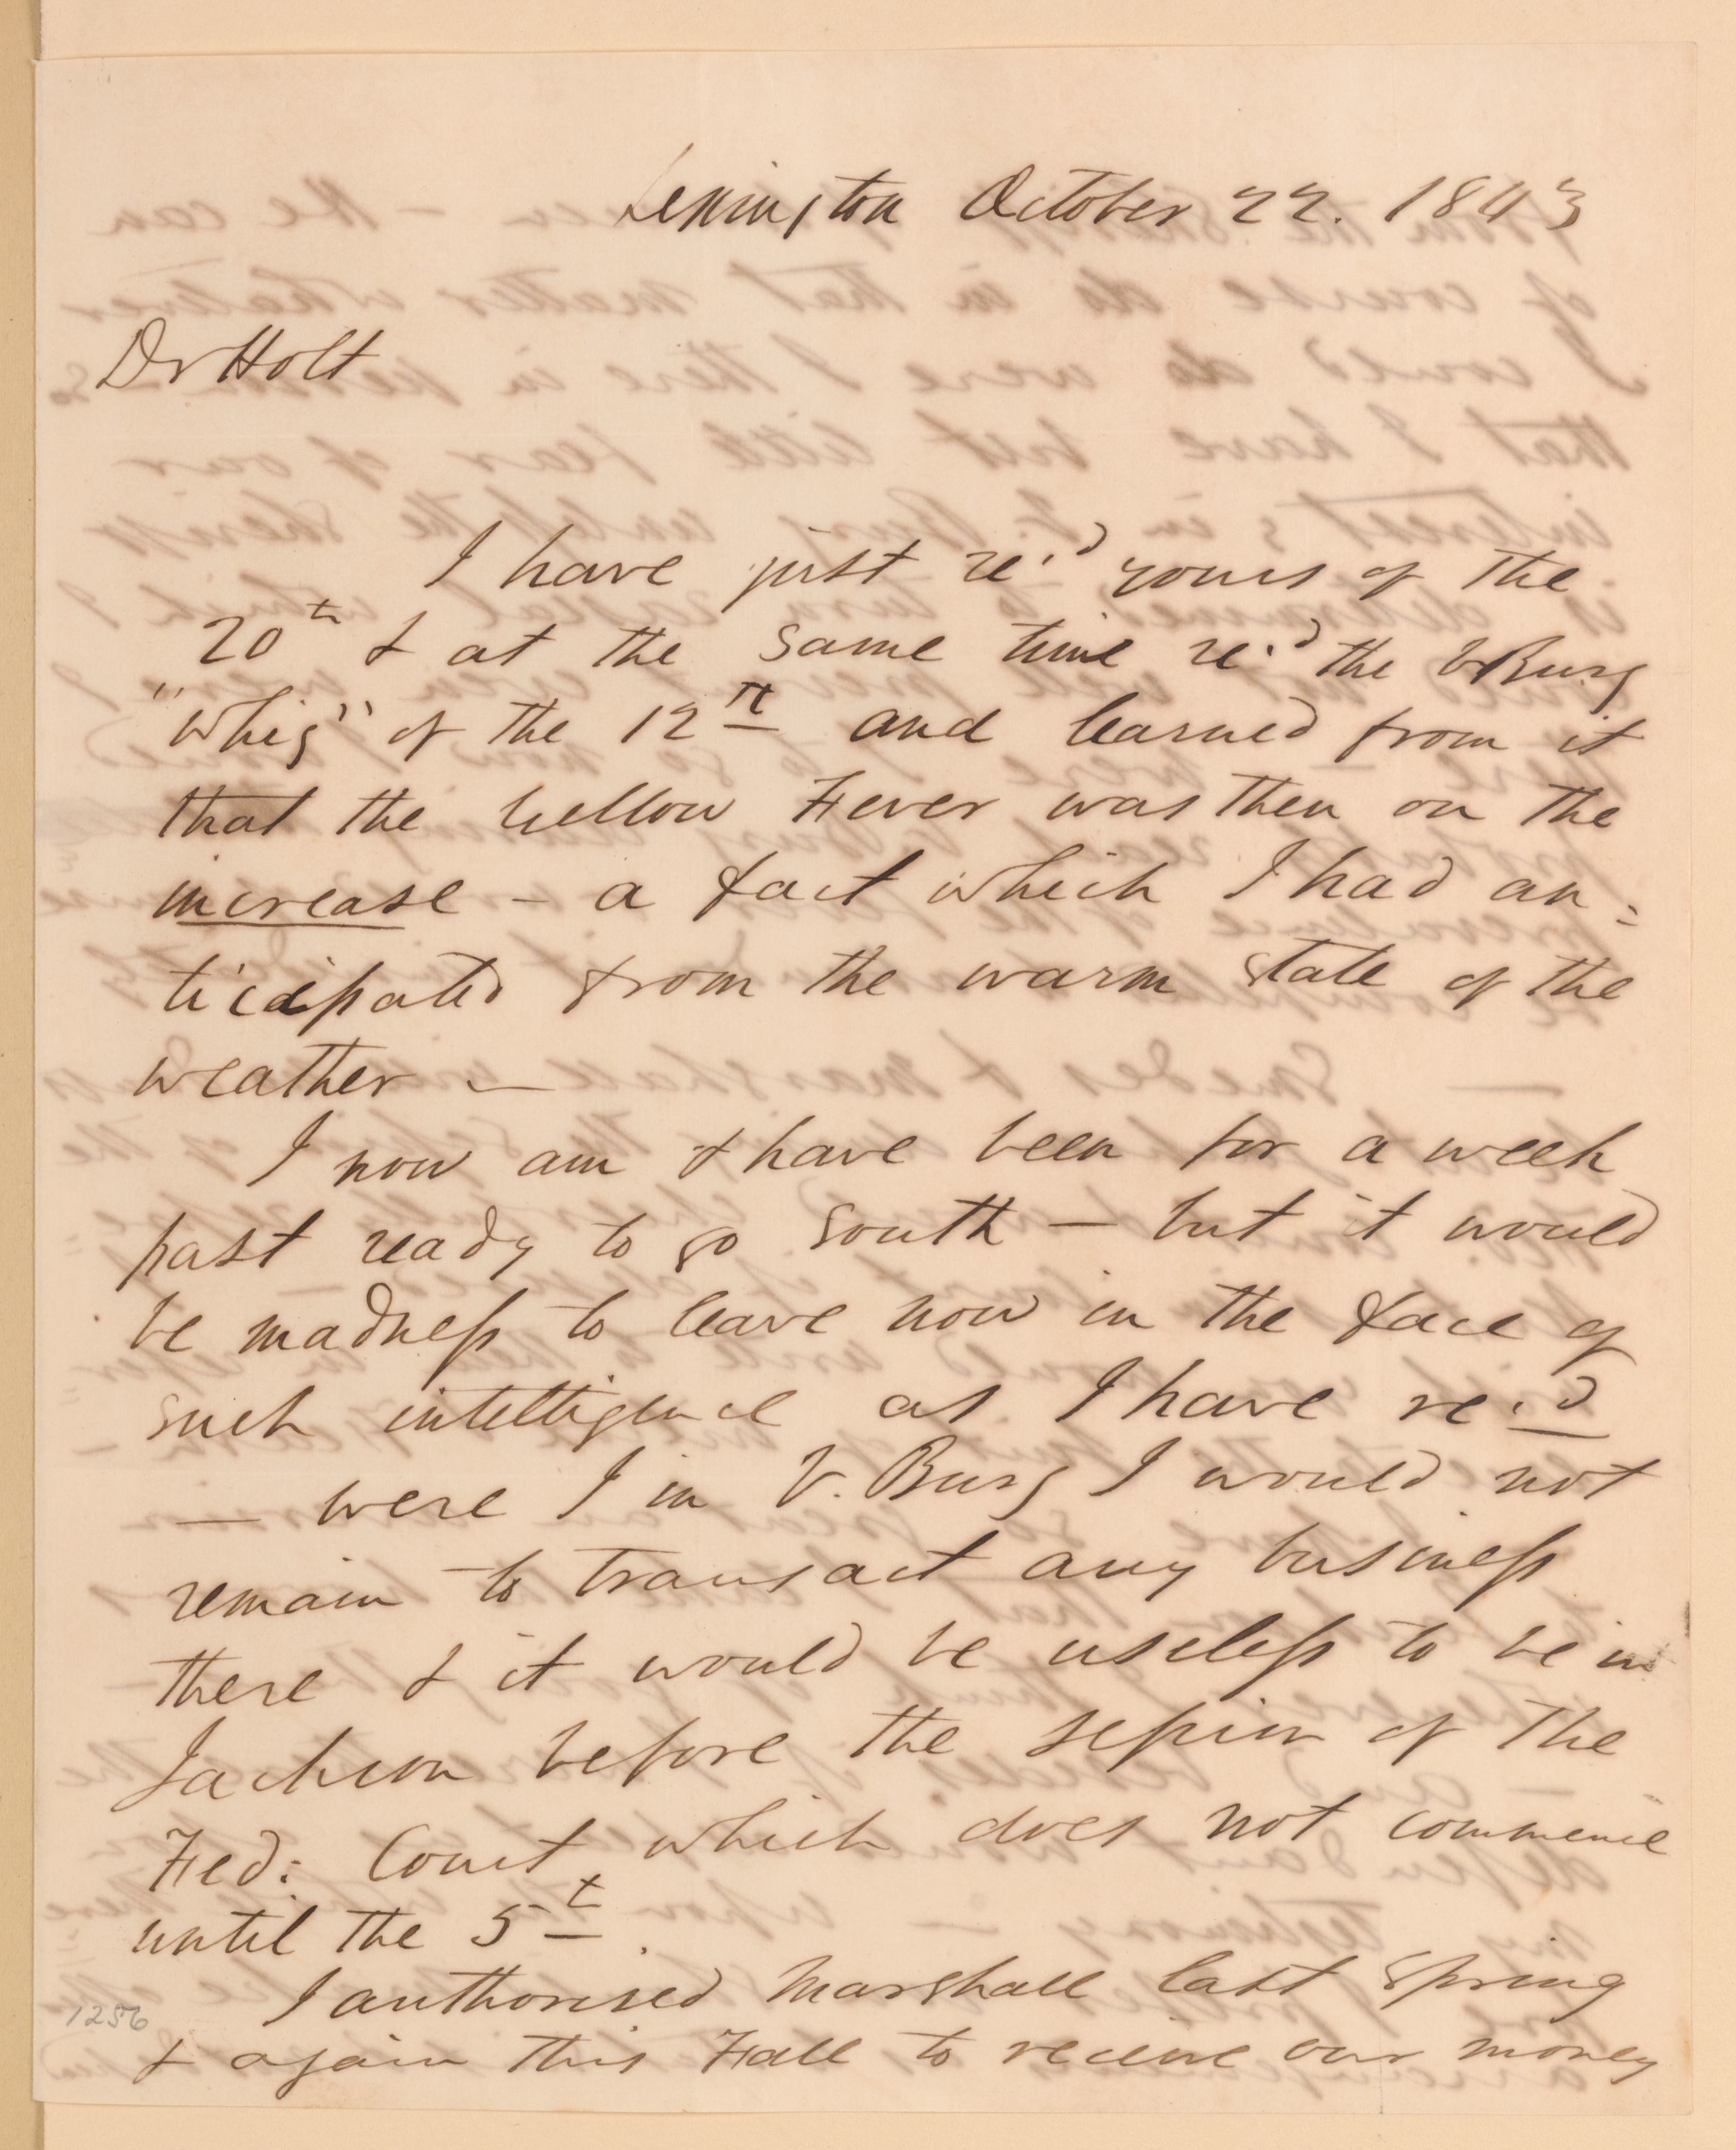 Lexington October 22. 1843
Dr Holt
I have just re.d yours of the
20th & at the same time re.d the V Burg
"Whig" of the 12th and learned from it
that the Yellow Fever was then on the
increase - a fact which I had an=
ticipated from the warm state of the
weather —
I now am & have been for a week
past ready to go South — but it would
be madness to leave now in the face of
such intelligence as I have re.d
— were I in V. Burg I would not
remain to transact any business
there & it would be useless to be in
Jackson before the session of the
Fed: Court which does not commence
until the 5th.
I authorised Marshall last spring
& again this Fall to receive our money
1256